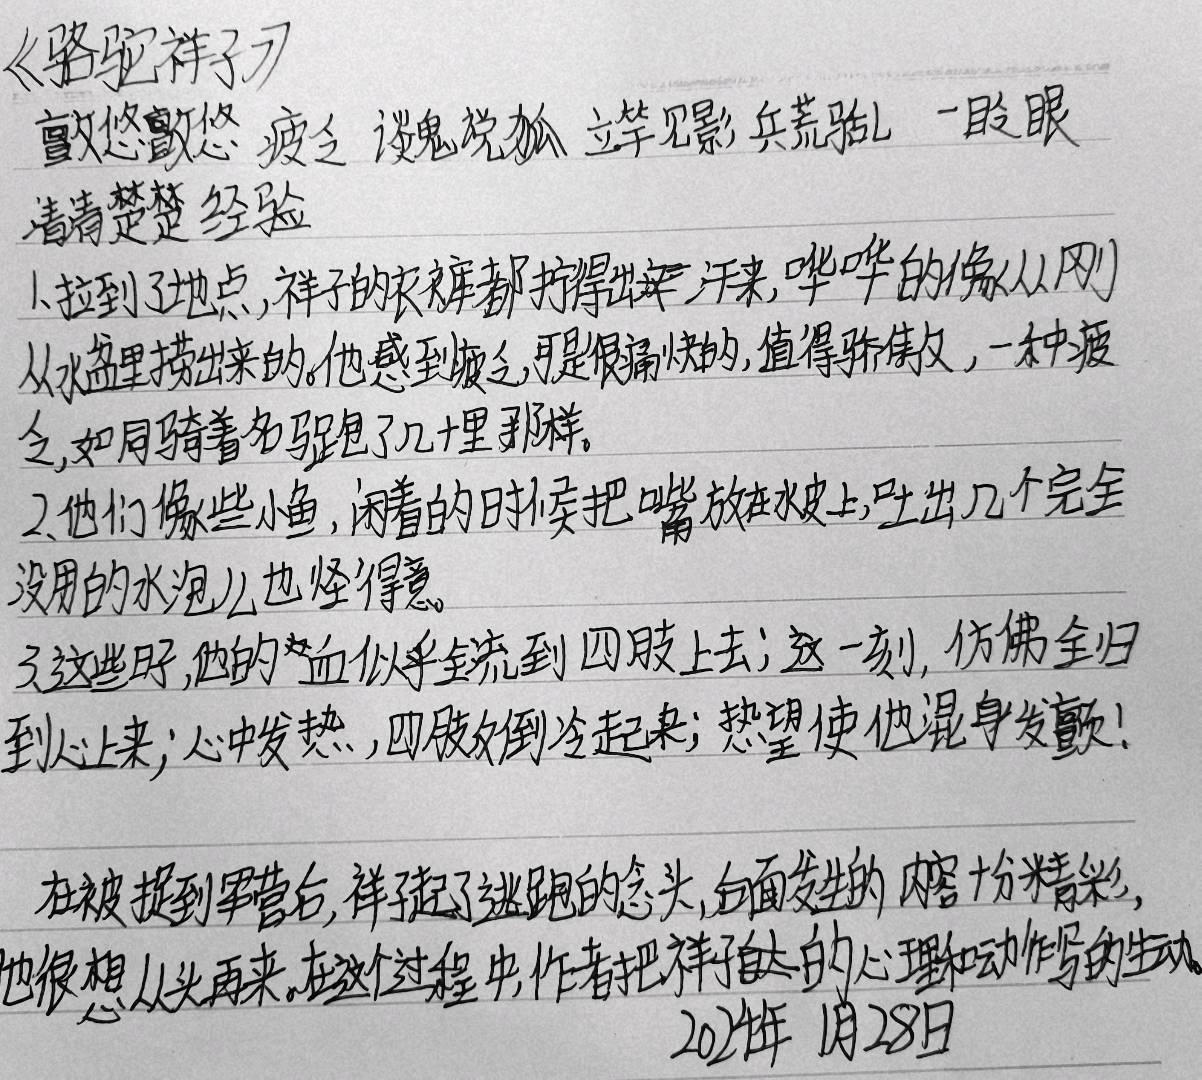 《骆驼祥子》
颤悠颤悠 疲乏 谈鬼说狐 立竿见影 兵荒马乱 一眨眼
清清楚楚 经验
1、拉到了地点,祥子的衣裤都拧得出汗来,哗哗的像从刚
从水盆里捞出来的。他感到疲乏,可是很痛快的,值得骄傲,一种疲
乏,如同骑着名马跑了几十里那样。
2、他们像些小鱼,闲着的时候把嘴放在水皮上,吐出几个完全
没用的水泡儿也怪得意。
3、这些时,他的血似乎全流到四肢上去;这一刻,仿佛全归
到心上来;心中发热,四肢反倒冷起来;热望使他混身发颤!
在被捉到军营后,祥子起了逃跑的念头,后面发生的内容十分精彩,
他很想从头再来。在这个过程中,作者把祥子的心理和动作写的生动。
2024年1月28日